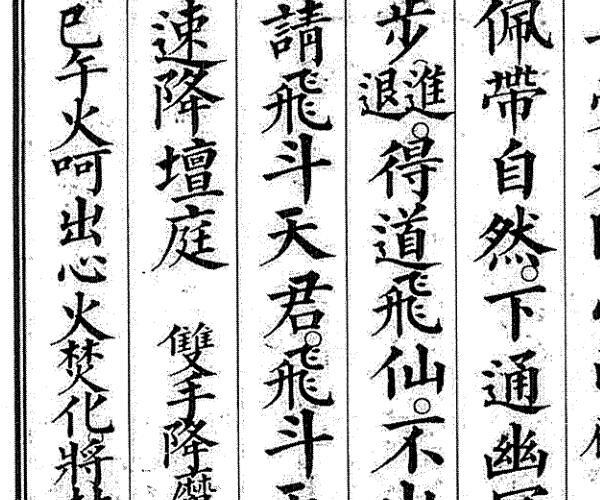 佩帶自然。下通幽
步進退。得道飛仙。不
請飛斗天君。飛斗
速降壇庭 雙手降魔
巳午火呵出心火焚化將